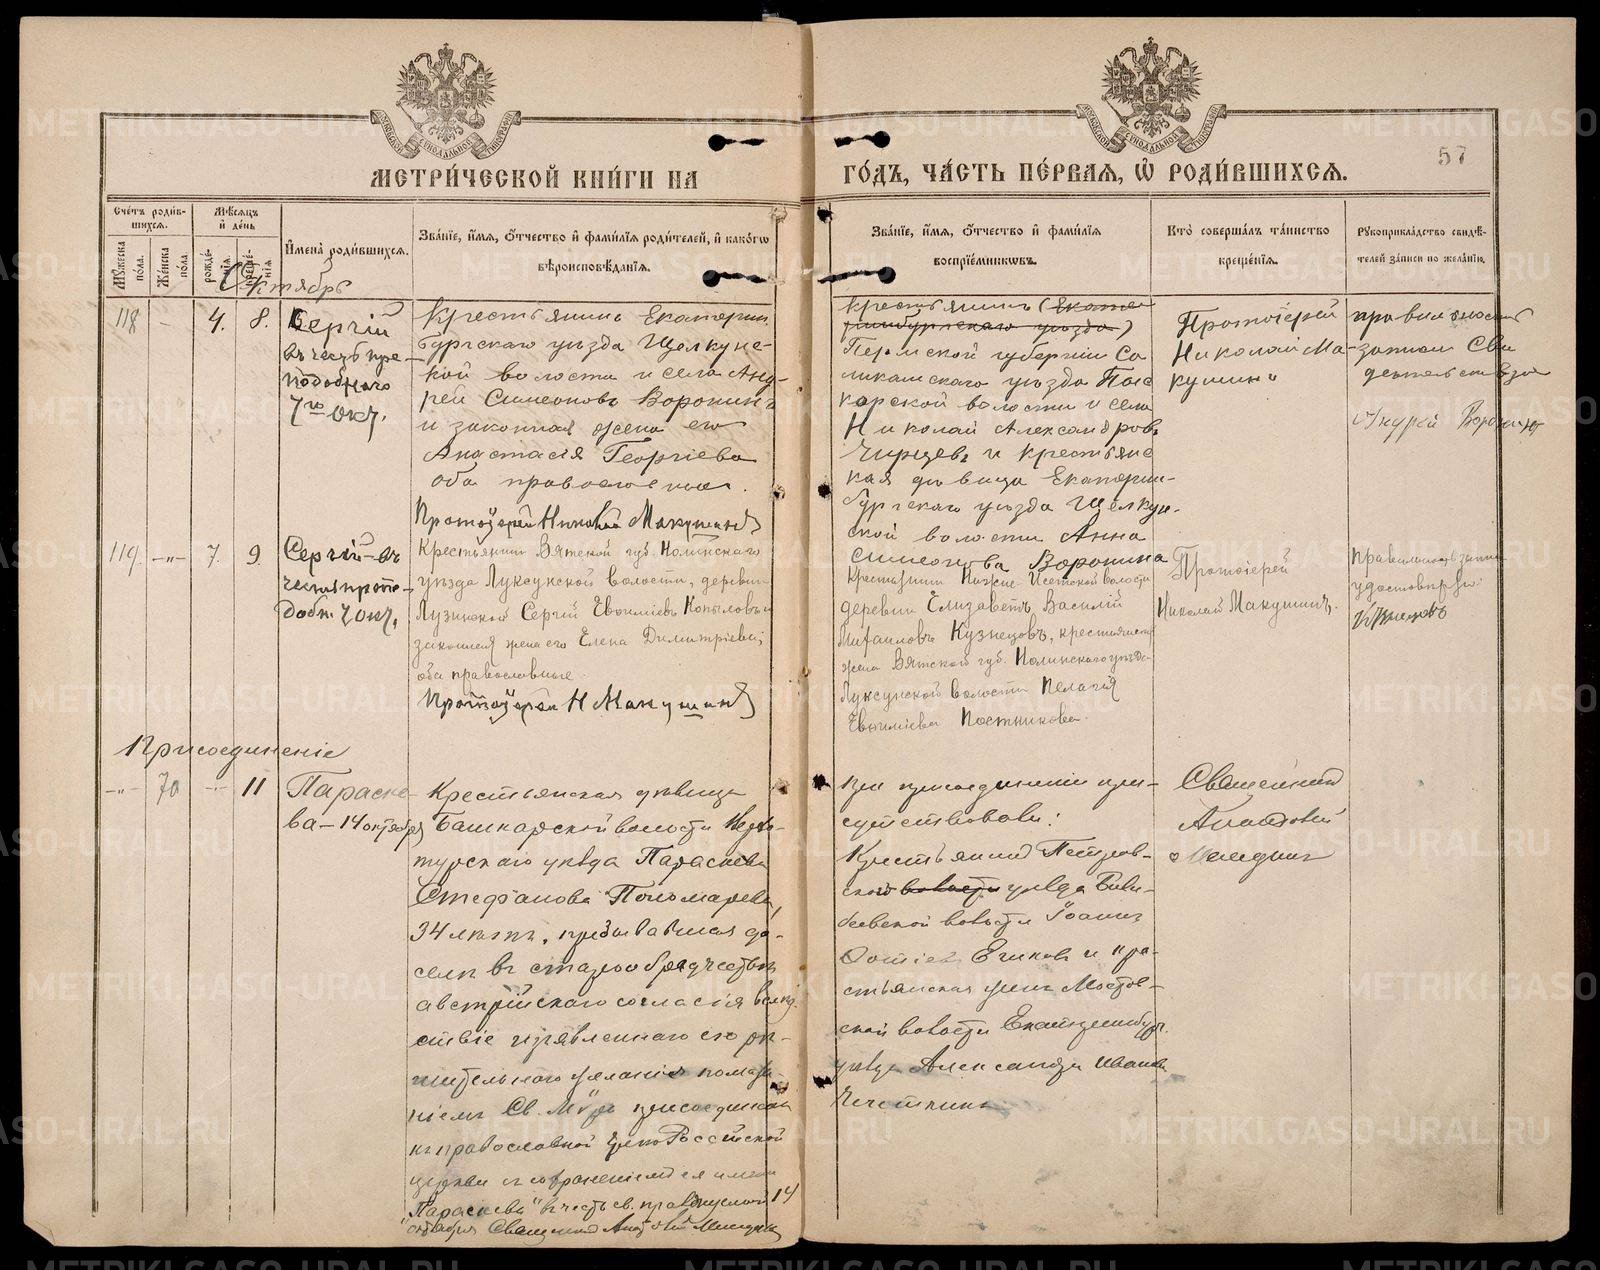 57
МЕТРИ́ЧЕСКОЙ КНИ́ГИ НА
ГО́ДЪ, ЧА́СТЬ ПЕ́РВАЯ, Ѽ РОДИ́ВШИХСЯ.
Счетъ роди́в-
шихся.
Мужеска по́ла.
Же́нска по́ла.
Мѣсяцъ и де́нь
рожде́нія.
креще́нія.
Имена̀ роди́вшихся.
Зва́ніе, и́мя, о́тчество и фами́лія роди́телей, и како́гѡ
вѣроисповѣ́данія.
Зва́ніе, и́мя, о́тчество и фами́лія
воспріе́мникѡвъ.
Кто̀ соверша́лъ та́инство
креще́нія.
Рукоприкла́дство свидѣ́-
телей за́писи по жела́нію.
Октябрь
118 - 4. 8.
Сергій
въ честь пре-
подобнаго
7го окт.
Крестьянинъ Екатерин
бургскаго уѣзда Щелкунс-
кой волости и села Анд-
рей Симеоновъ Воронинъ
и законная жена его
Анастасія Георгіева
оба православные.
Протоіерей Николай Макушинъ
Крестьянинъ (Екате
ринбургскаго уѣзда)
Пермской губерніи Со
ликамскаго уѣзда Пыс
корской волости и села
Николай Александровъ
Чирцевъ и крестьянс
кая дѣвица Екатерин-
бургскаго уѣзда Щелкун-
ской волости Анна
Симеонова Воронина
Протоіерей
Николай Ма-
кушинъ
правильность
записи Сви
дѣтельствую
Андрей Воронинъ
119. -"- 7. 9
Сергій въ
честь препо-
добн. 7 окт.
Крестьянин Вятской губ. Нолинскаго
уѣзда Луксунской волости, деревни
Лузинской Сергій Евѳиміевъ Копыловъ и
законная жена его Елена Димитріева;
оба православные
Протоіерей Н Макушинъ
Крестьянин Нижне-Исетской волости
деревни Елизаветъ, Василій
Михаиловъ Кузнецовъ, крестьянская
жена Вятской губ. Нолинскаго уѣзда
Луксунской волости Пелагія
Евѳиміева Постникова.
Протоіерей
Николай Макушинъ.
Правильность записи
удостовѣряю:
Кузнецовъ
Присоединеніе
-"- 70 -"- 11
Параске-
ва - 14 октября
Крестьянская дѣвица
Башкарской волости Верхо-
турскаго уѣзда Параскева
Стефанова Пономарева,
34 лѣтъ, пребывавшая до-
селѣ въ старообрядчествѣ
австрійскаго согласія вслѣд-
ствіе изъявленнаго ею рѣ-
шительнаго желанія помаза-
ніемъ Св. Мѵра присоединена
къ православной греко Россійской
церкви съ сохраненіемъ ея имени
"Параскева" въ честь св. празднуемой 14
октября Священник Анатолій
При присоединеніи при-
сутствовали:
Крестьянинъ Петров-
скаго волости уѣзда
волости Іоаннъ
и кре-
стьянская жена Мостов-
ской волости Екатеринбург.
уѣзда Александра Иванова
Священникъ
Анатолій
METRIKI.GASO-URAL.RU